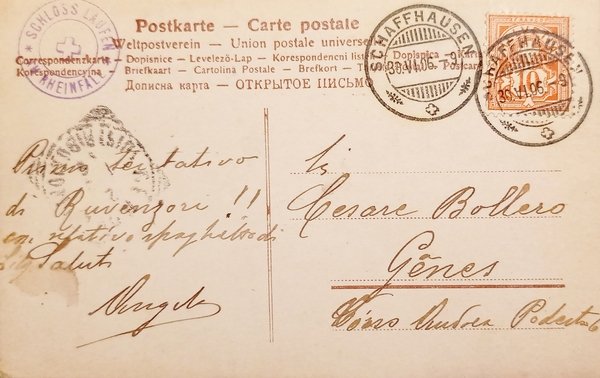 SCHLOSS LAUFEN
RHEINFALL
Postkarte – Carte postale
Weltpostverein – Union postale universelle
Correspondenzkarte – Dopisnice – Levelező-Lap – Korespondencni listek – Dopisnica –
Korespondencyjna – Briefkaart – Cartolina Postale – Brefkort –
Дописна карта – ОТКРЫТОЕ ПИСЬМО
SCHAFFHAUSEN
30.VI.06.
SCHAFFHAUSEN
30.VI.06.
10
Primo tentativo
di Ruvenzori !!
con relativo spaghetto di
Saluti
Sig
Cesare Bollero
Gênes
Corso Andrea Podestà 6